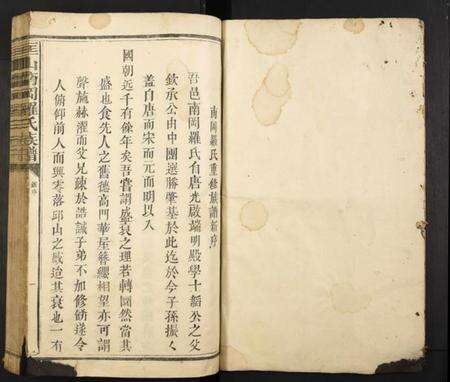 南岡羅氏重修族譜新序
吾邑南岡羅氏自唐光啟端明殿學士韜公之父
欽承公由中團選勝肇基於此迄於今子孫振〻
蓋自唐而宋而元而明以入
國朝遠千有餘年矣吾嘗謂盛衰之理若轉圜然當其
盛也食先人之舊德高門華屋簪纓相望亦可謂
聲施赫濯而父兄疎於誥誡子弟不加修飭遂令
人俯仰前人而興零落邱山之感迨其衰也一有
山南岡羅氏族譜
新序
一